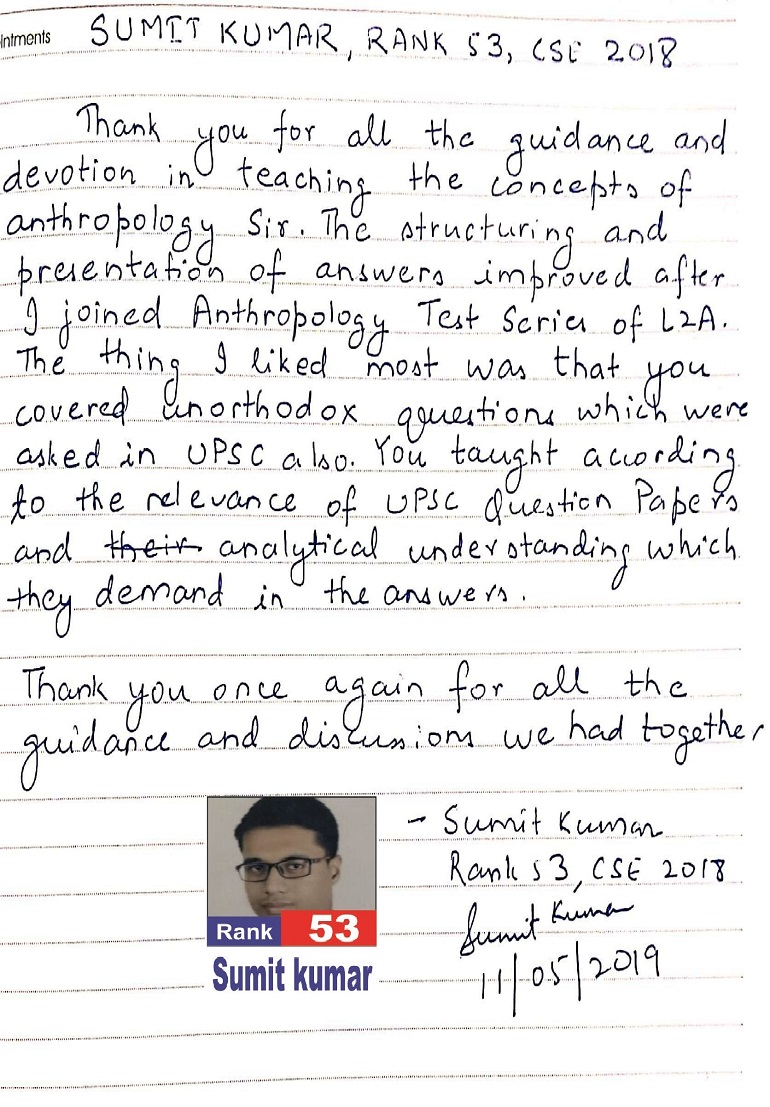 intments
SUMIT KUMAR, RANK 53, CSE 2018
Thank you for all the guidance and
devotion in teaching the concepts of
anthropology Sir. The structuring and
presentation of answers improved after
I joined Anthropology Test Series of L2A.
The thing I liked most was that you
covered unorthodox questions which were
asked in UPSC also. You taught according
to the relevance of UPSC Question Papers
and their analytical understanding which
they demand in the answers.
Thank you once again for all the
guidance and discussions we had together
- Sumit Kumar
Rank 53, CSE 2018
Sumit Kumar
11/05/2019
Rank 53
Sumit kumar